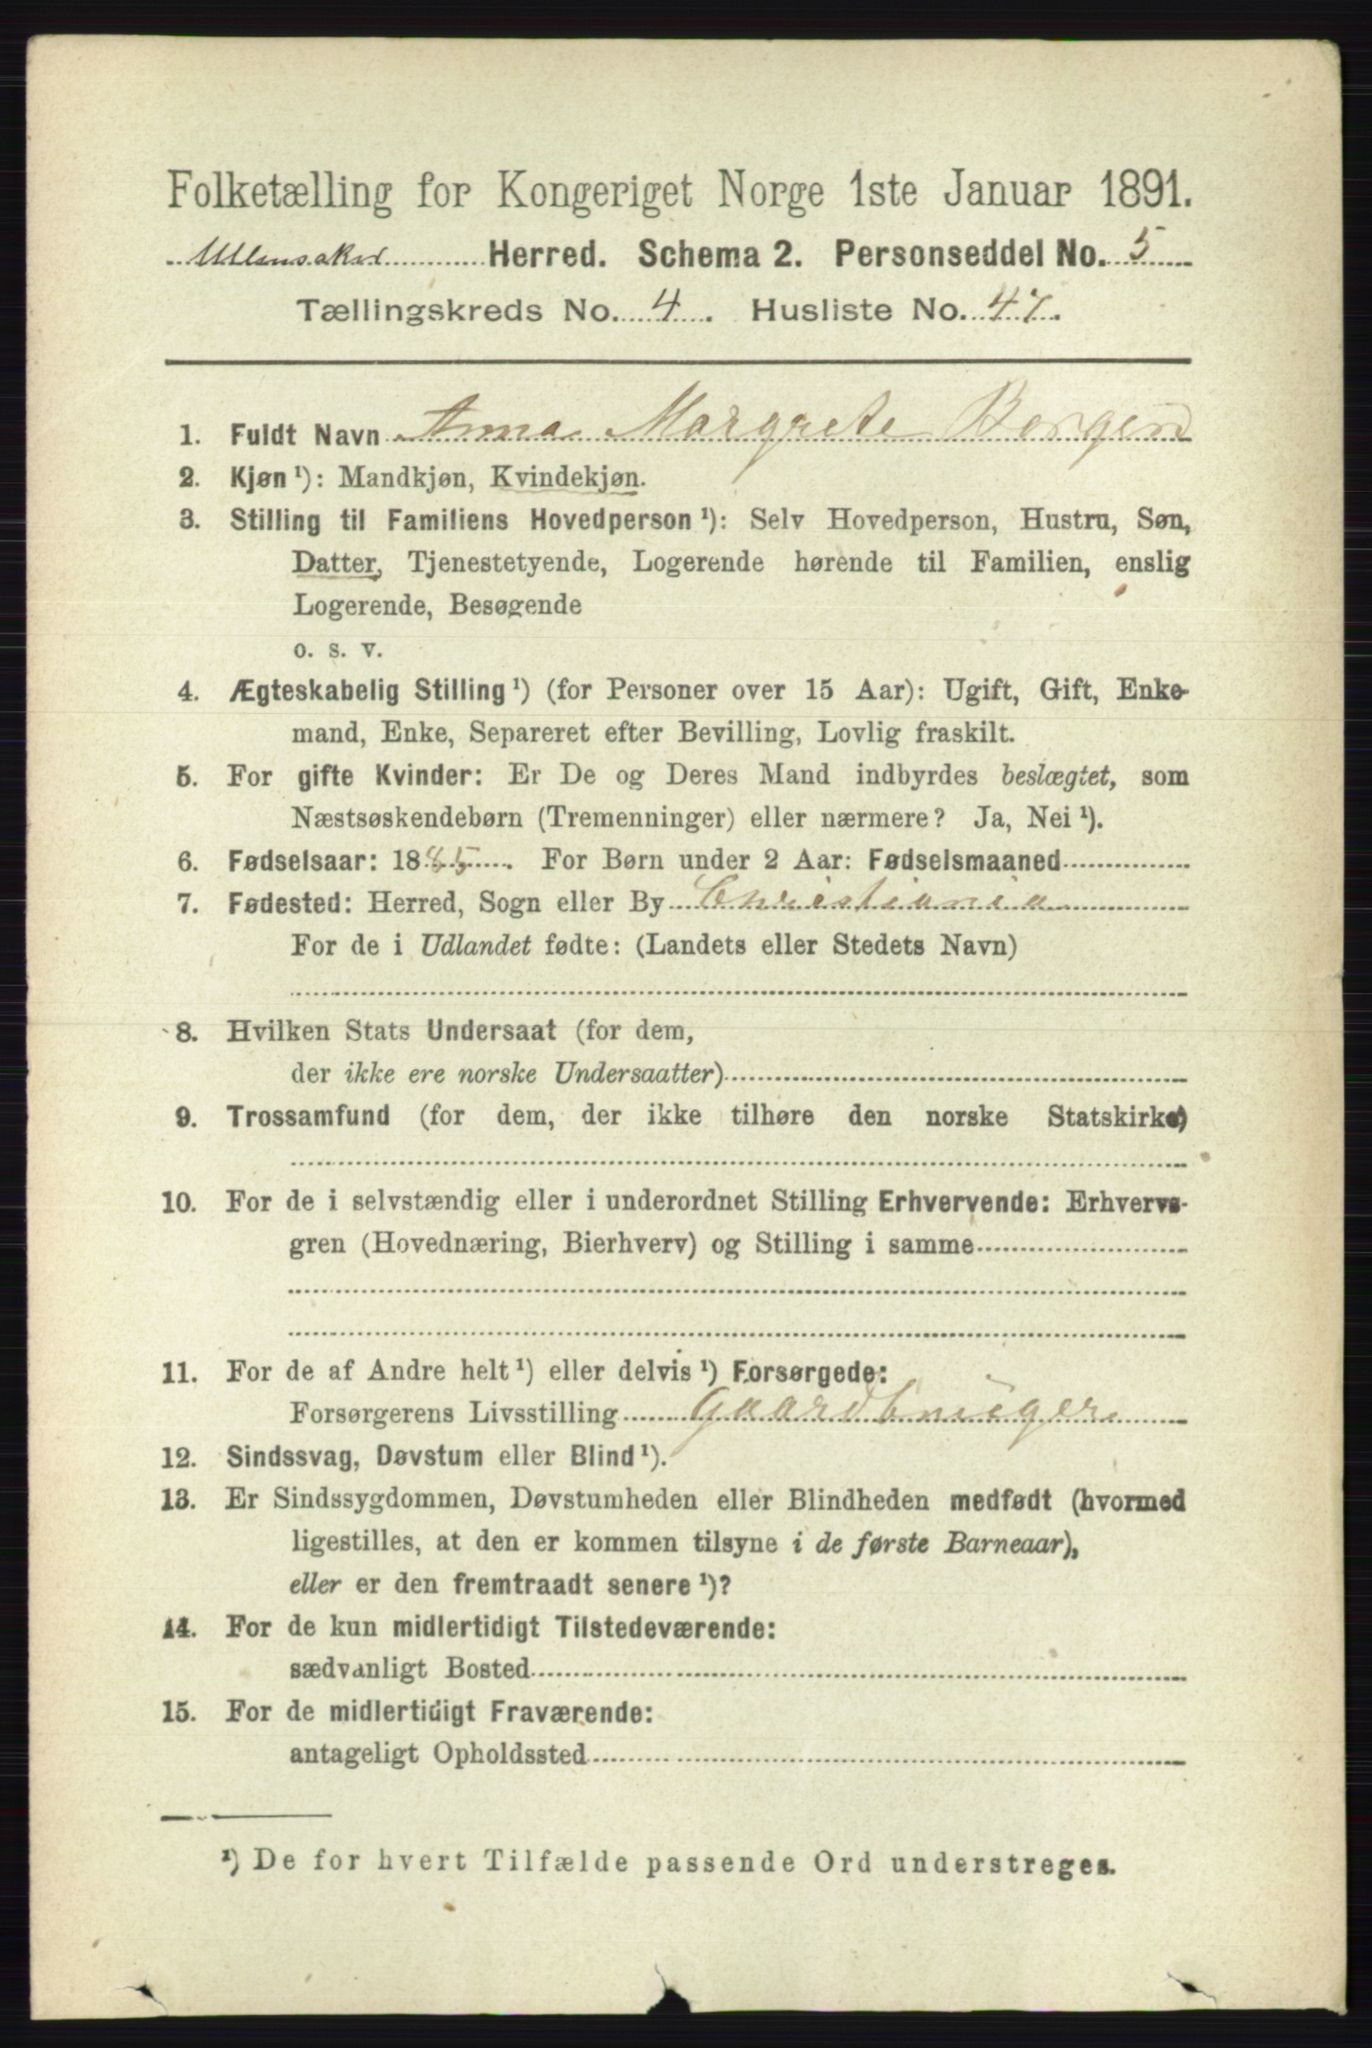 Folketælling for Kongeriget Norge 1ste Januar 1891.
Ullensaker Herred. Schema 2. Personseddel No. 5
Tællingskreds No. 4. Husliste No. 47.
1. Fuldt Navn Anna Margrete Borgen
2. Kjøn ¹): Mandkjøn, Kvindekjøn.
3. Stilling til Familiens Hovedperson ¹): Selv Hovedperson, Hustru, Søn,
Datter, Tjenestetyende, Logerende hørende til Familien, enslig
Logerende, Besøgende
o. s. v.
4. Ægteskabelig Stilling ¹) (for Personer over 15 Aar): Ugift, Gift, Enke-
mand, Enke, Separeret efter Bevilling, Lovlig fraskilt.
5. For gifte Kvinder: Er De og Deres Mand indbyrdes beslægtet, som
Næstsøskendebørn (Tremenninger) eller nærmere? Ja, Nei ¹).
6. Fødselsaar: 1885. For Børn under 2 Aar: Fødselsmaaned
7. Fødested: Herred, Sogn eller By Christiania
For de i Udlandet fødte: (Landets eller Stedets Navn)
8. Hvilken Stats Undersaat (for dem,
der ikke ere norske Undersaatter)
9. Trossamfund (for dem, der ikke tilhøre den norske Statskirke)
10. For de i selvstændig eller i underordnet Stilling Erhvervende: Erhvervs-
gren (Hovednæring, Bierhverv) og Stilling i samme
11. For de af Andre helt ¹) eller delvis ¹) Forsørgede:
Forsørgerens Livsstilling Gaardbruger
12. Sindssvag, Døvstum eller Blind ¹).
13. Er Sindssygdommen, Døvstumheden eller Blindheden medfødt (hvormed
ligestilles, at den er kommen tilsyne i de første Barneaar),
eller er den fremtraadt senere ¹)?
14. For de kun midlertidigt Tilstedeværende:
sædvanligt Bosted
15. For de midlertidigt Fraværende:
antageligt Opholdssted
¹) De for hvert Tilfælde passende Ord understreges.